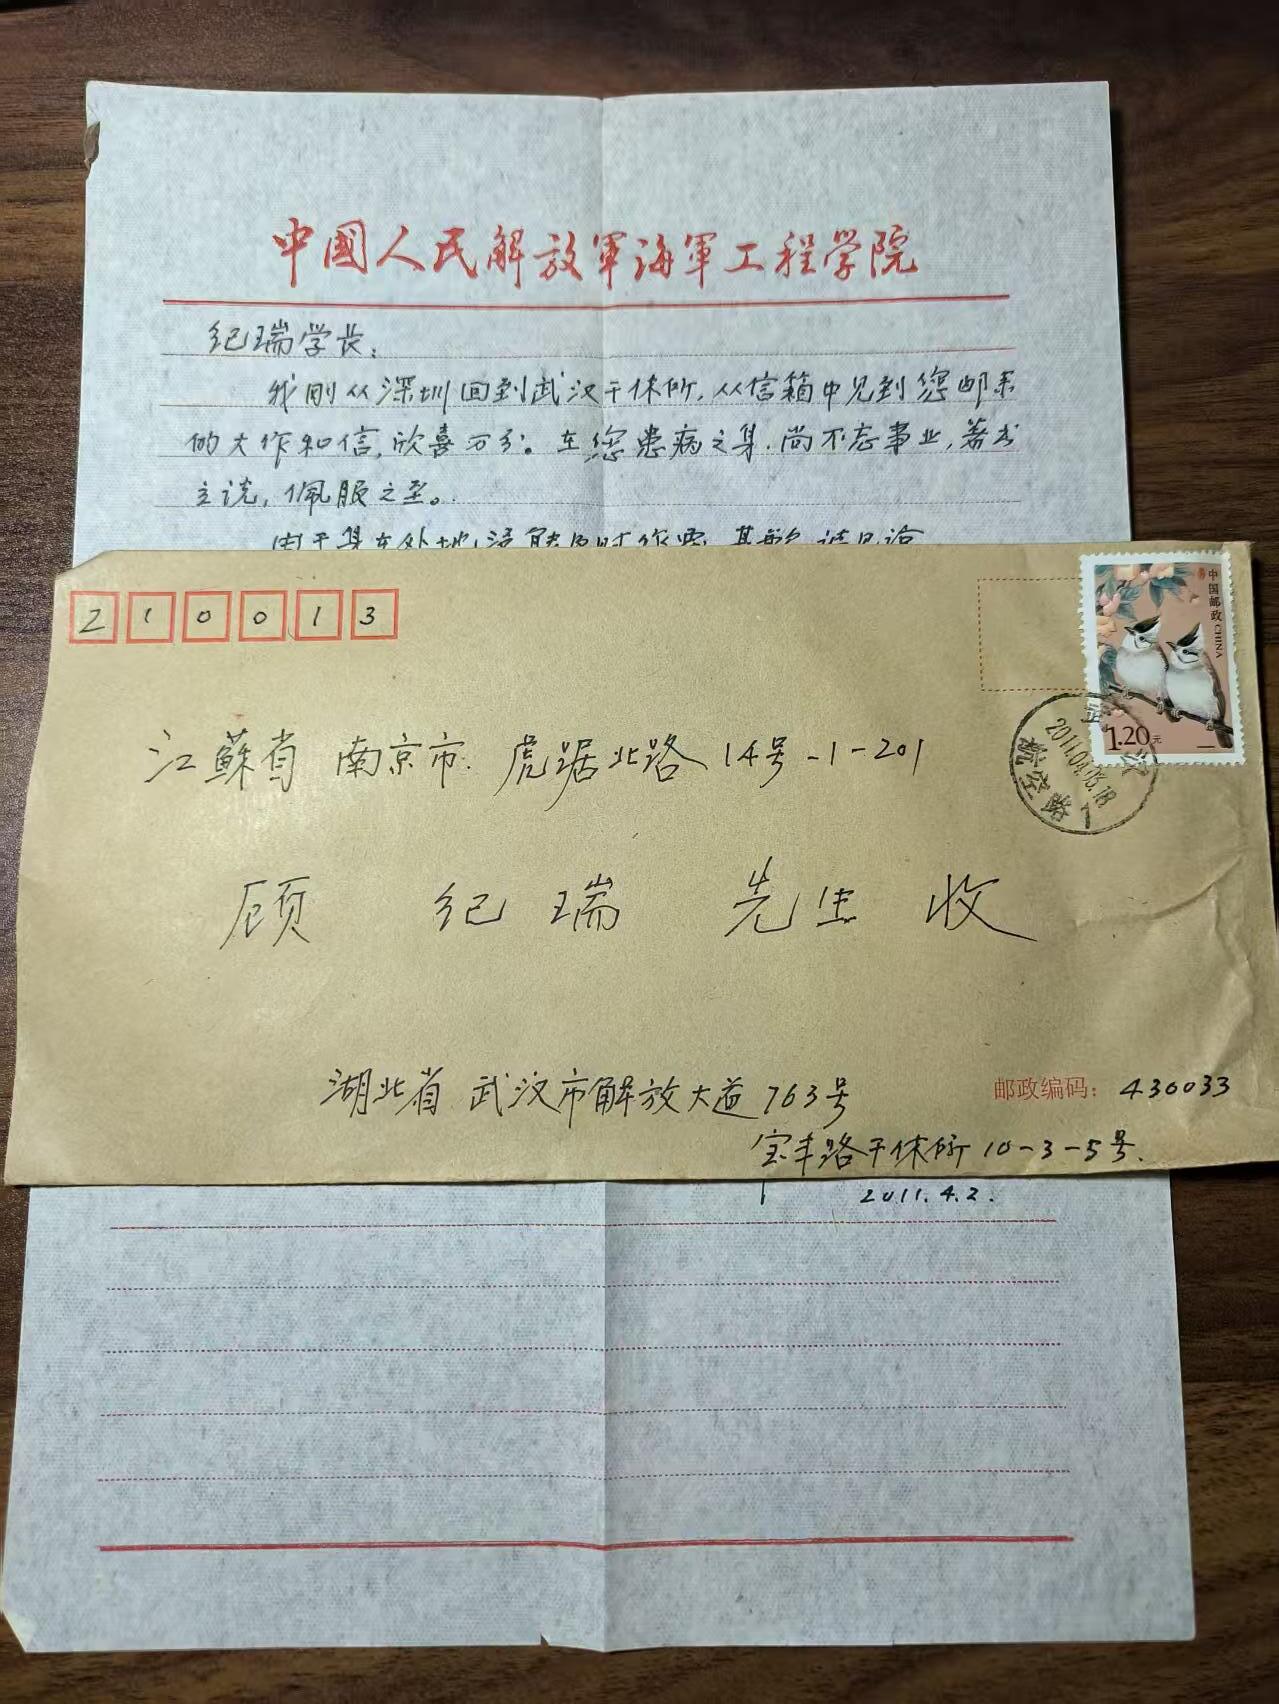 中國人民解放軍海軍工程学院
纪瑞学长：
我刚从深圳回到武汉干休所，从信箱中见到您邮来
的大作和信，欣喜万分。在您患病之身，尚不忘事业，著书
立说，佩服之至。
由于身在外地，没能及时作覆，甚歉，请见谅
210013
中国邮政 CHINA
1.20元
武汉
2011.04.03.18
江蘇省 南京市 虎踞北路 14号-1-201
顾 纪瑞 先生 收
湖北省 武汉市解放大道763号
邮政编码：430033
宝丰路干休所10-3-5号.
2011.4.2.